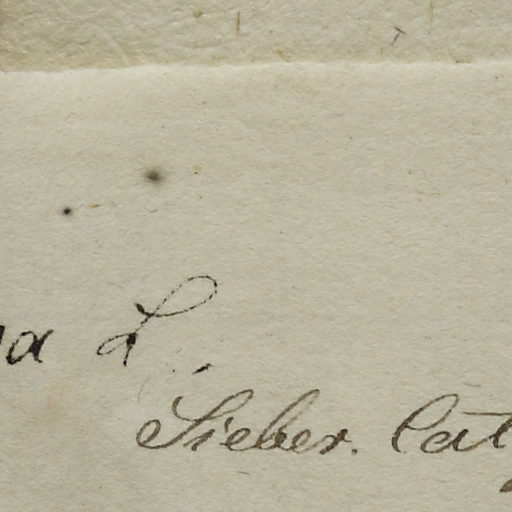 L.
Sieber. Cat